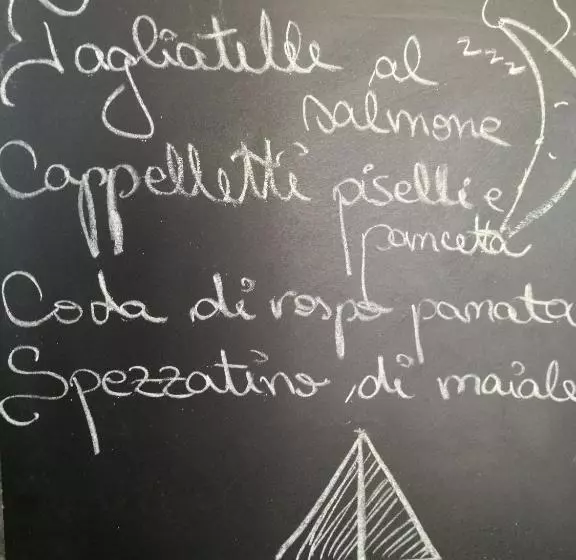 Tagliatelle al
zzz
salmone
Cappelletti piselli e
pancetta
Coda di rospo panata
Spezzatino di maiale